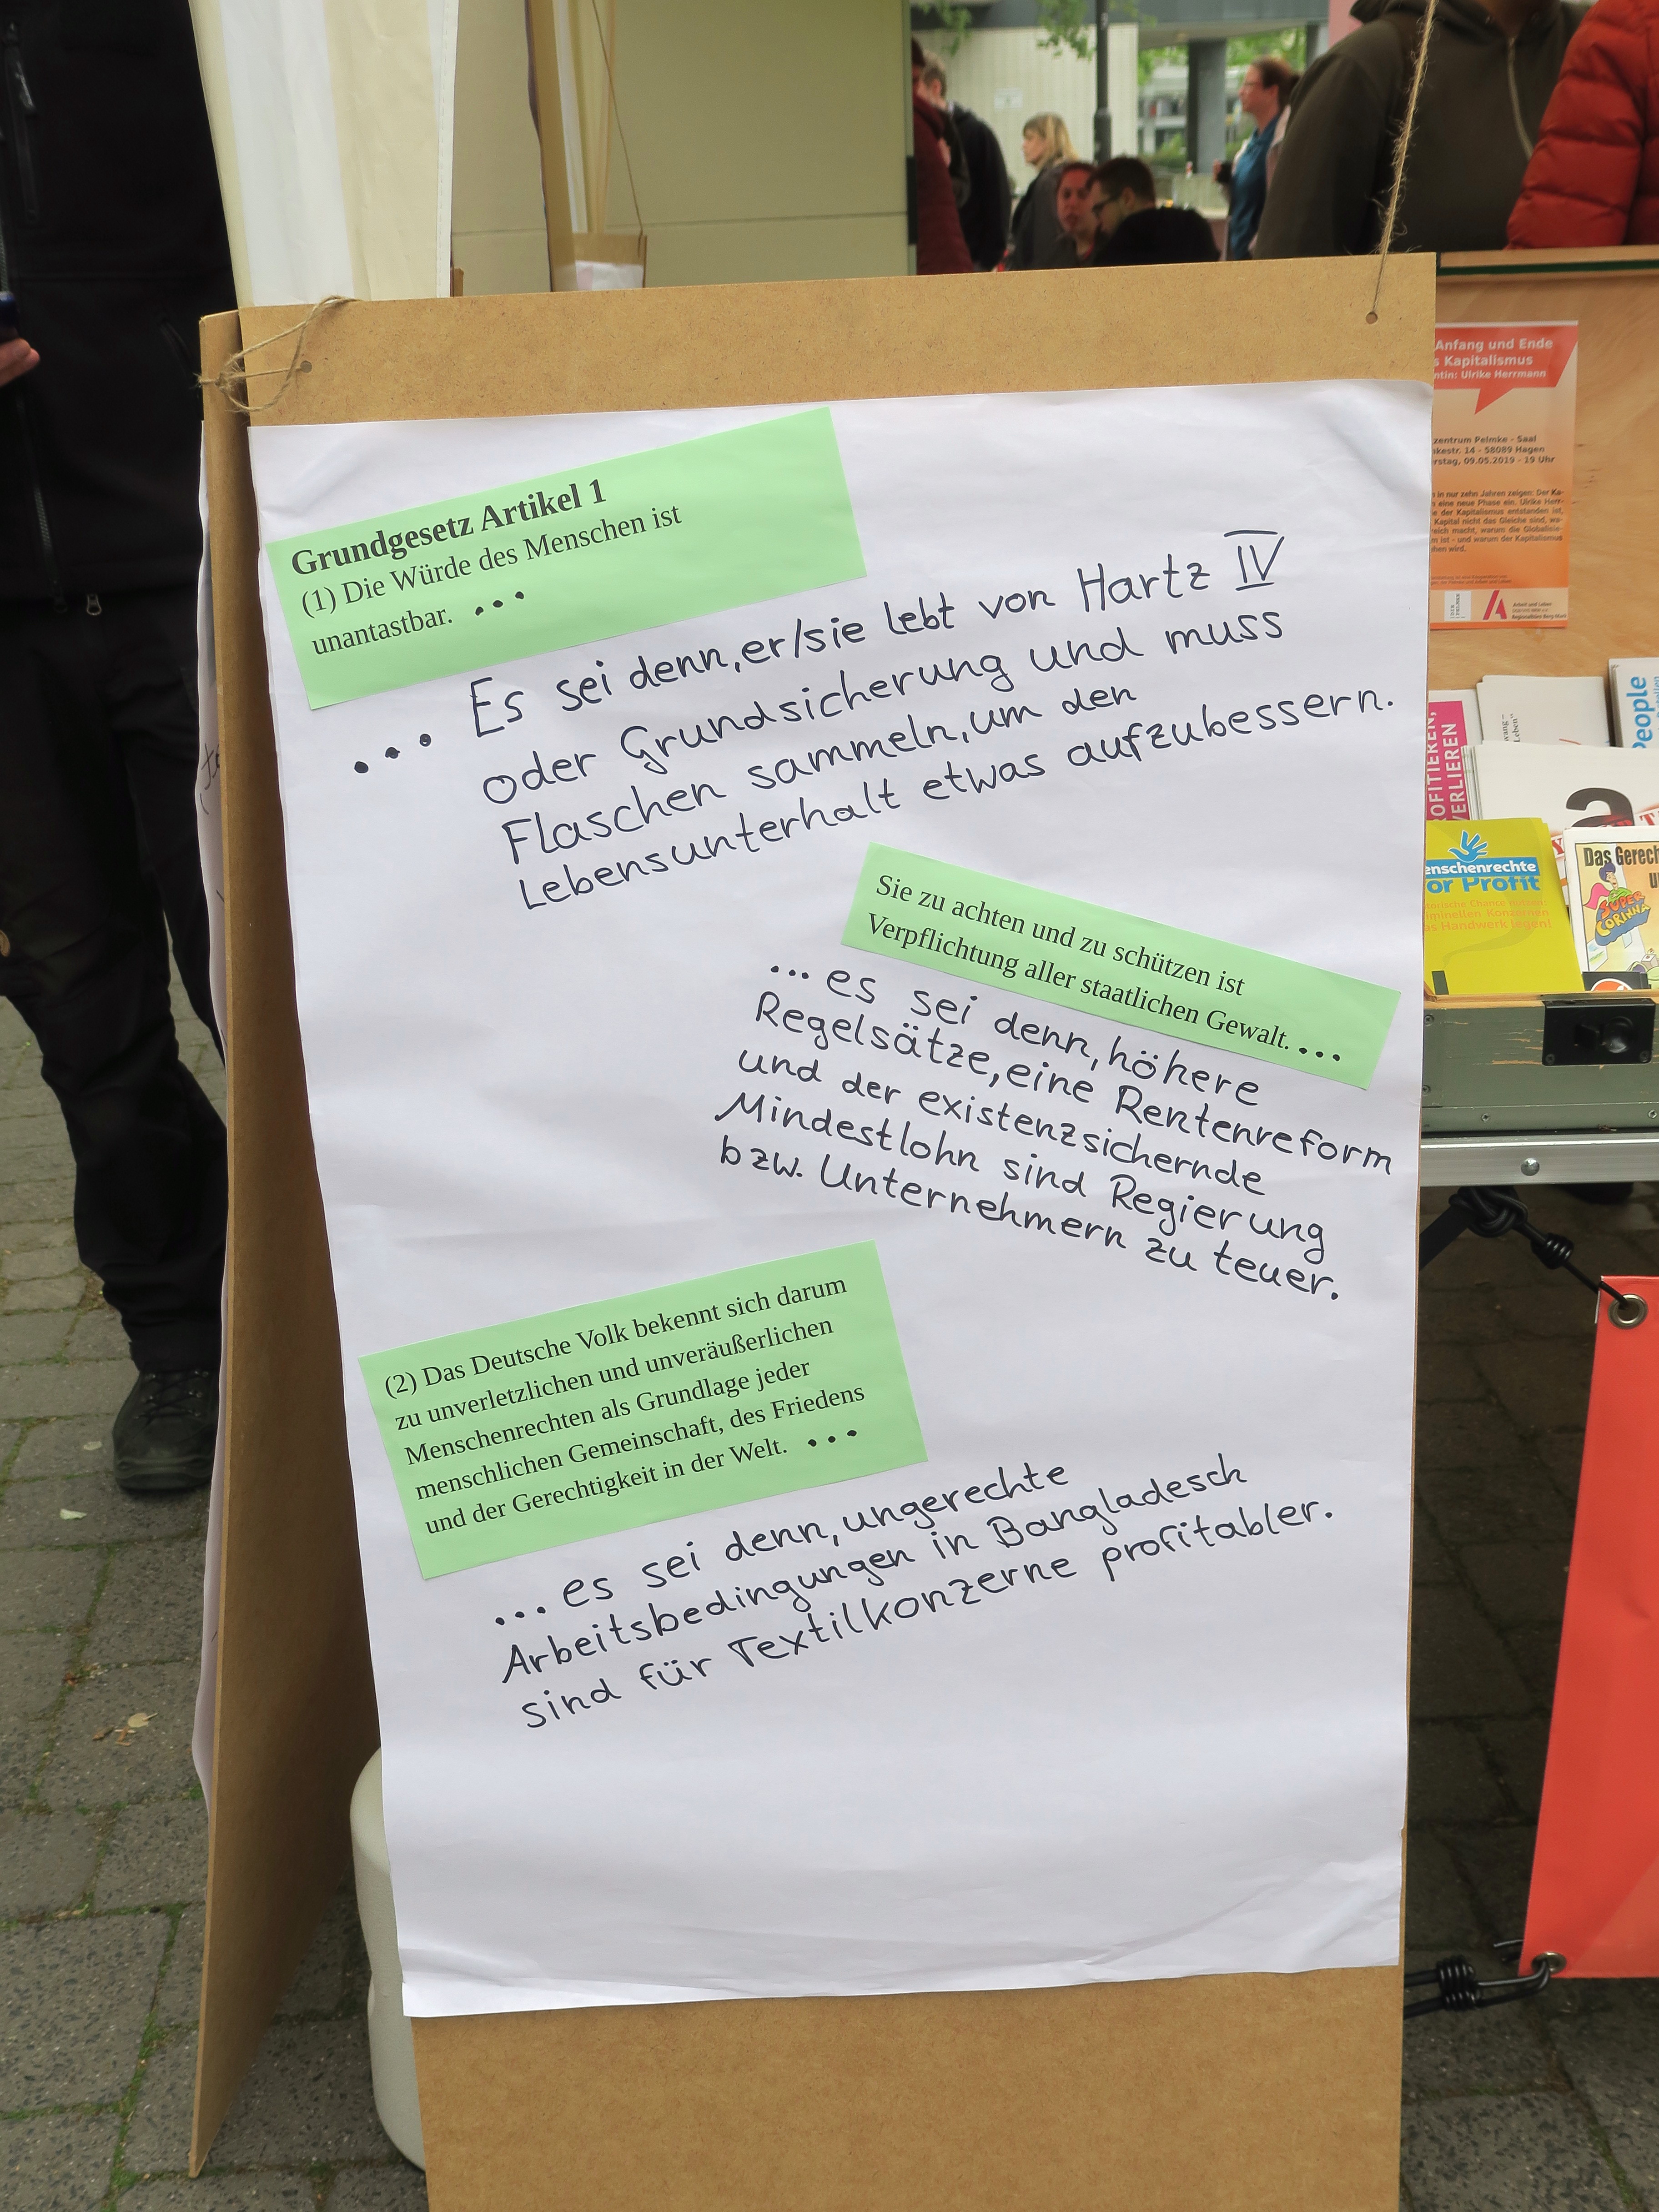 Grundgesetz Artikel 1
(1) Die Würde des Menschen ist
unantastbar. ...
... Es sei denn, er/sie lebt von Hartz IV
oder Grundsicherung und muss
Flaschen sammeln, um den
Lebensunterhalt etwas aufzubessern.
Sie zu achten und zu schützen ist
Verpflichtung aller staatlichen Gewalt. ...
... es sei denn, höhere
Regelsätze, eine Rentenreform
und der existenzsichernde
Mindestlohn sind Regierung
bzw. Unternehmern zu teuer.
(2) Das Deutsche Volk bekennt sich darum
zu unverletzlichen und unveräußerlichen
Menschenrechten als Grundlage jeder
menschlichen Gemeinschaft, des Friedens
und der Gerechtigkeit in der Welt. ...
... es sei denn, ungerechte
Arbeitsbedingungen in Bangladesch
sind für Textilkonzerne profitabler.
Anfang und Ende
s Kapitalismus
ntin: Ulrike Herrmann
zentrum Pelmke - Saal
kestr. 14 - 58089 Hagen
rstag, 09.05.2019 - 19 Uhr
People
OFITIEREN,
VERLIEREN
a
enschenrechte
or Profit
Das Gerech
SUPER
CORINNA